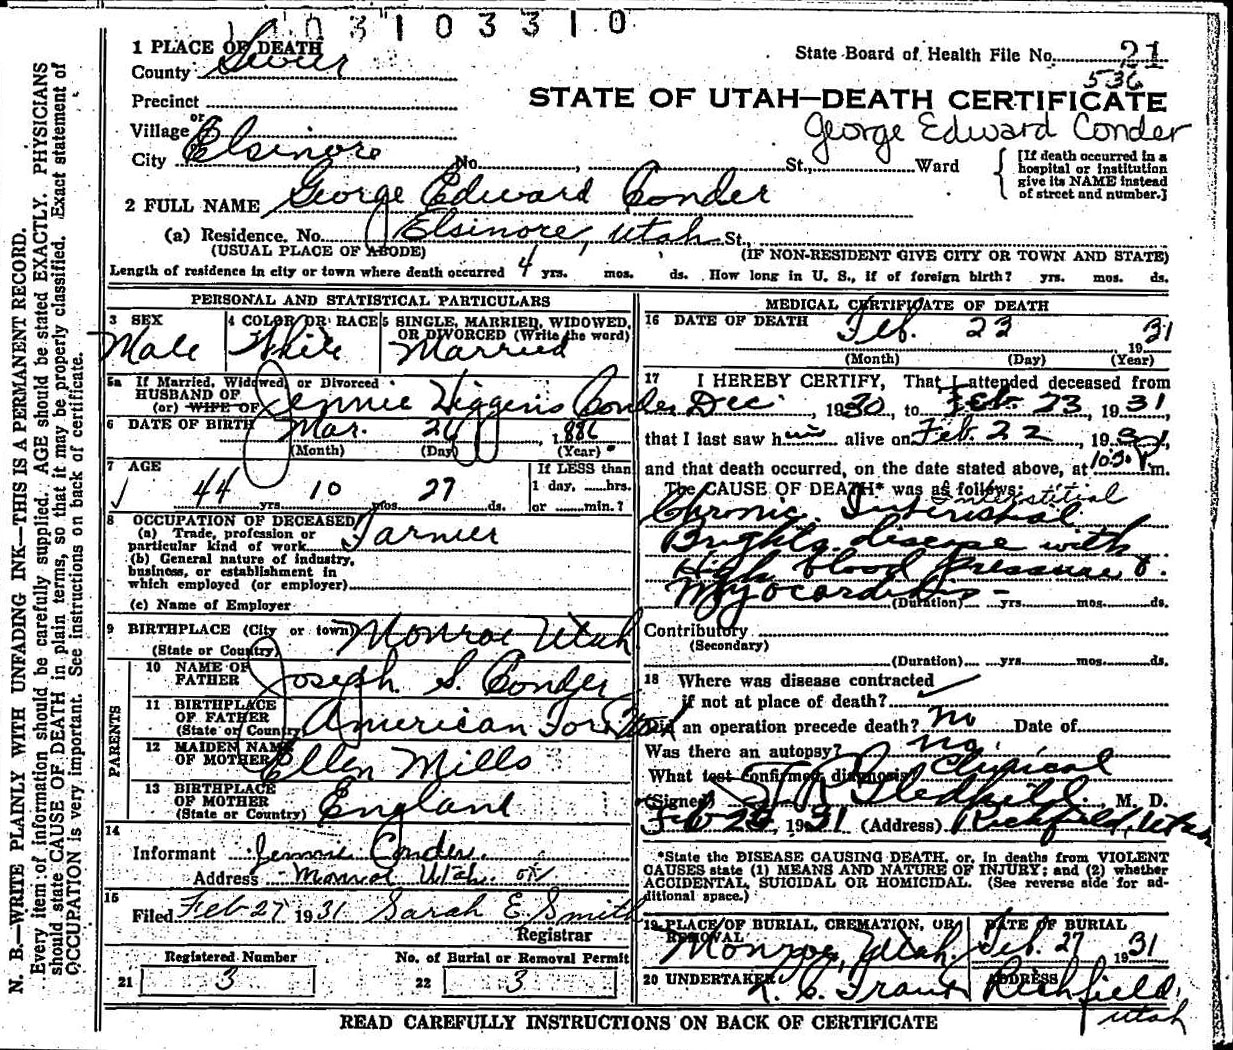 03103310
1 PLACE OF DEATH
County Sevier
State Board of Health File No. 21
536
Precinct
STATE OF UTAH—DEATH CERTIFICATE
George Edward Conder
or
Village
City Elsinore No. , St., Ward
[If death occurred in a
hospital or institution
give its NAME instead
of street and number.]
2 FULL NAME George Edward Conder
(a) Residence. No. Elsinore, Utah St.,
(USUAL PLACE OF ABODE) (IF NON-RESIDENT GIVE CITY OR TOWN AND STATE)
Length of residence in city or town where death occurred 4 yrs. mos. ds. How long in U. S., if of foreign birth? yrs. mos. ds.
PERSONAL AND STATISTICAL PARTICULARS
3 SEX
Male
4 COLOR OR RACE
White
5 SINGLE, MARRIED, WIDOWED,
OR DIVORCED (Write the word)
Married
5a If Married, Widowed, or Divorced
HUSBAND OF
(or) WIFE OF Jennie Higgens Conder
6 DATE OF BIRTH Mar. 26, 1886
(Month) (Day) (Year)
7 AGE
44 yrs. 10 mos. 27 ds.
If LESS than
1 day, ......hrs.
or ......min.?
8 OCCUPATION OF DECEASED
(a) Trade, profession or
particular kind of work Farmer
(b) General nature of industry,
business, or establishment in
which employed (or employer)
(c) Name of Employer
9 BIRTHPLACE (City or town) Monroe Utah
(State or Country)
PARENTS
10 NAME OF
FATHER Joseph S. Conder
11 BIRTHPLACE
OF FATHER
(State or Country) American Fork
12 MAIDEN NAME
OF MOTHER Ellen Mills
13 BIRTHPLACE
OF MOTHER
(State or Country) England
14
Informant Jennie Conder.
Address Monroe Utah.
15
Filed Feb 27 1931 Sarah E. Smith
Registrar
Registered Number No. of Burial or Removal Permit
21 3 22 3
MEDICAL CERTIFICATE OF DEATH
16 DATE OF DEATH Feb. 23 1931
(Month) (Day) (Year)
17 I HEREBY CERTIFY, That I attended deceased from
Dec. , 1930, to Feb. 23, 1931
that I last saw him alive on Feb. 22, 1931,
and that death occurred, on the date stated above, at m.
The CAUSE OF DEATH* was as follows:
Interstitial
Chronic Interstial
Brights disease with
High blood pressure &
Myocarditis -
(Duration) yrs. mos. ds.
Contributory
(Secondary)
(Duration) yrs. mos. ds.
18 Where was disease contracted
if not at place of death?
Did an operation precede death? no Date of
Was there an autopsy? no.
What test confirmed diagnosis? Clinical
(Signed) , M. D.
Feb 1931 (Address) Richfield, Utah
*State the DISEASE CAUSING DEATH, or, in deaths from VIOLENT
CAUSES state (1) MEANS AND NATURE OF INJURY; and (2) whether
ACCIDENTAL, SUICIDAL OR HOMICIDAL. (See reverse side for ad-
ditional space.)
19 PLACE OF BURIAL, CREMATION, OR
REMOVAL
Monroe, Utah.
DATE OF BURIAL
Feb. 27 1931
20 UNDERTAKER
ADDRESS
Richfield,
Utah
READ CAREFULLY INSTRUCTIONS ON BACK OF CERTIFICATE
N. B.—WRITE PLAINLY WITH UNFADING INK—THIS IS A PERMANENT RECORD.
Every item of information should be carefully supplied. AGE should be stated EXACTLY. PHYSICIANS
should state CAUSE OF DEATH in plain terms, so that it may be properly classified. Exact statement of
OCCUPATION is very important. See instructions on back of certificate.